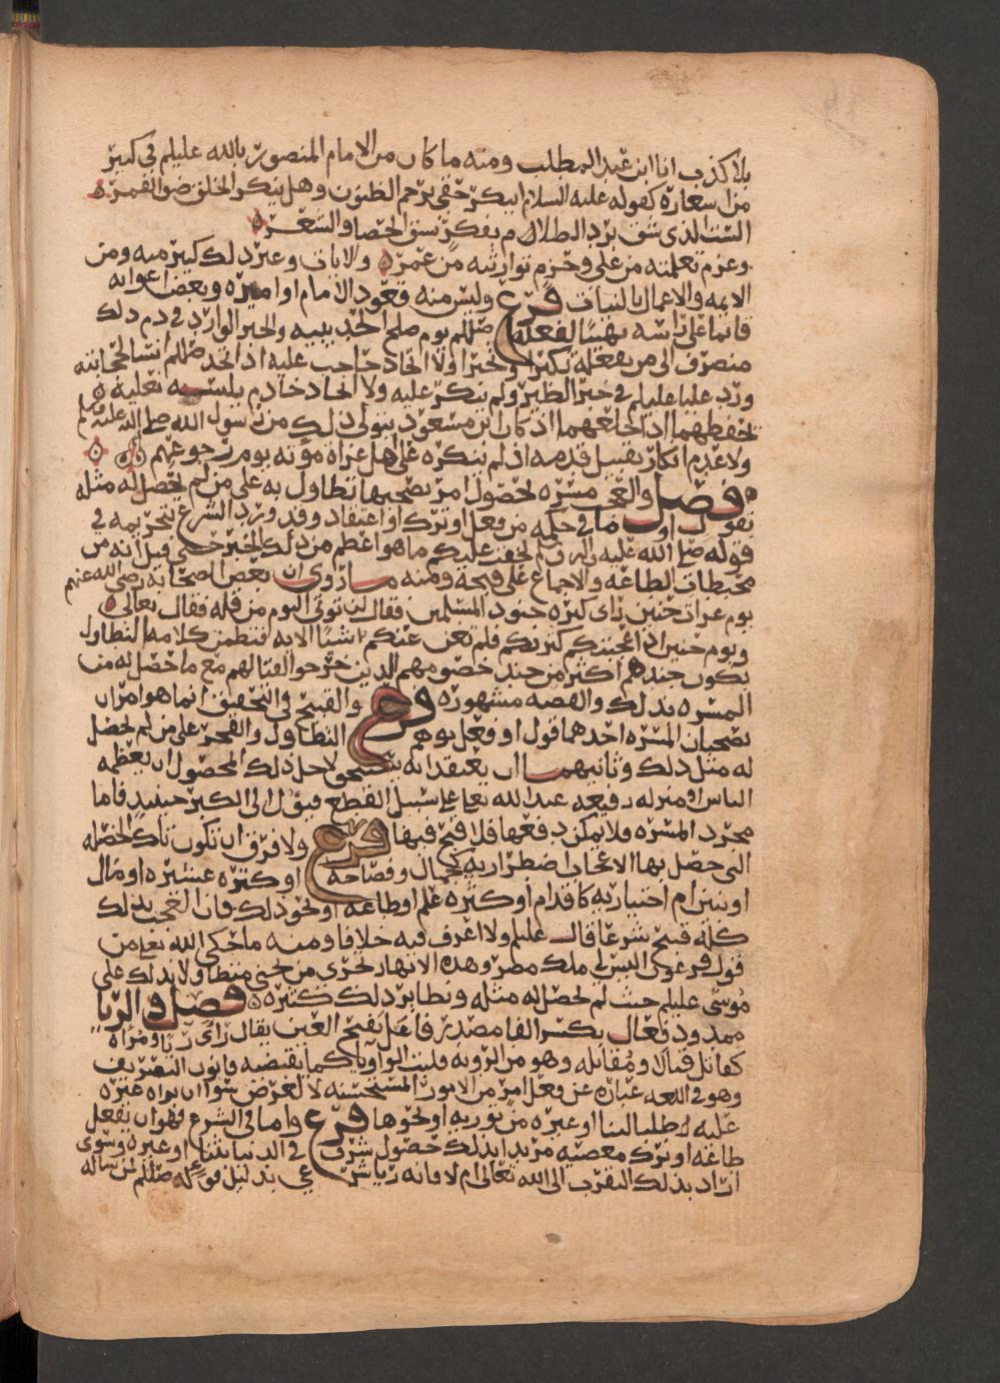 بلا كذب انا ابن عبد المطلب ومنه ما كان من الامام المنصور بالله عليلم في كثير
من اشعاره كقوله عليه السلام ايبكر حقي برجم الظنون وهل ينكر الخلق ضو القمر
الست الذي شق برد الظلال م بفكر شق الحصا والشعر
وعزم تعلمته من علي وحزم توارثته من عمر والاباف وغير ذلك كثير منه ومن
الايمه والاعمال بالنيات فرع وليس منه قعود الامام او اميره وبعض اعوانه
قائما على راسه تهيبا لفعله صللم يوم صلح الحديبيه والخبر الوارد في ذم ذلك
منصرف الى من يفعله تكبرا وتجبرا ولا اتخاذ حاجب عليه اذ اتخذ صللم انسا لحجابته
ورد عليا عليلم في خبر الطير ولم ينكر عليه ولا اتخاذ خادم يلبسه نعليه
يحفظهما اذا خلعهما اذ كان ابن مسعود يتولى ذلك من رسول الله صلى الله عليه وسلم
ولا عدم انكار تقبيل قدمه اذ لم ينكره على اهل غزاه مؤته يوم رجوعهم
فصل والعجب مسره لحصول امر يصحبها تطاول به على من لم يحصل له مثله
بقول او ما في حكمه من فعل او ترك او اعتقاد وقد ورد الشرع بتحريمه في
قوله صلى الله عليه واله وسلم لخفت عليكم ما هو اعظم من ذلك العجب حتى قيل انه من
محبطات الطاعه والاجماع على قبحه ومنه ما روي ان بعض الصحابه رضي الله عنهم
يوم غزاة حنين راى كثره جنود المسلمين فقال لن نؤتى اليوم من قله فقال تعالى
ويوم حنين اذ اعجبتكم كثرتكم فلم تغن عنكم شيئا الايه فتضمن كلامه التطاول
بكون جندهم اكثر من جند خصومهم الذين خرجوا لقتالهم مع ما حصل له من
المسره بذلك والقصه مشهوره فرع والقبيح في التحقيق انما هو امران
يصحبان المسره احدهما قول او فعل يوهم التطاول والفخر على من لم يحصل
له مثل ذلك وثانيهما ان يعتقد انه يستحق لاجل ذلك المحصول ان يعظمه
الناس او منزله رفيعه عند الله تعالى على سبيل القطع فيؤل الى الكبر حينيذ فاما
مجرد المسره فلا يمكن دفعها فلا قبح فيها فرع ولا فرق ان تكون تلك الخصله
التي حصل بها الاعجاب اضطراريه كجمال وفصاحه او كثره عشيره او مال
او بنين ام اختياريه كاقدام او كثره علم او طاعه او نحو ذلك فان العجب بذلك
كله قبيح شرعا قال عليلم ولا اعرف فيه خلافا ومنه ما حكى الله تعالى من
قول فرعون اليس لي ملك مصر وهذه الانهار تجري من تحتي متطاولا بذلك على
موسى عليلم حيث لم يحصل له مثله ونظاير ذلك كثيره فصل والريا
ممدود فعال بكسر الفا مصدر فاعل بفتح العين يقال راى رياء ومراه
كقاتل قتالا ومقاتله وهو من الرويه قلبت الواو يا كما يقتضيه قانون التصريف
وهو في اللغه عباره عن فعل امر من الامور المستحسنه لا لغرض سوا ان يراه غيره
عليه طلبا للثنا او غيره من توريه او نحوها فرع واما في الشرع فهو ان يفعل
طاعه او يترك معصيه مريدا بذلك حصول شرف في الدنيا بثنا او غيره وسوى
اراد بذلك التقرب الى الله تعالى ام لا فانه ريا شرعي بدليل قوله صللم لمن ساله